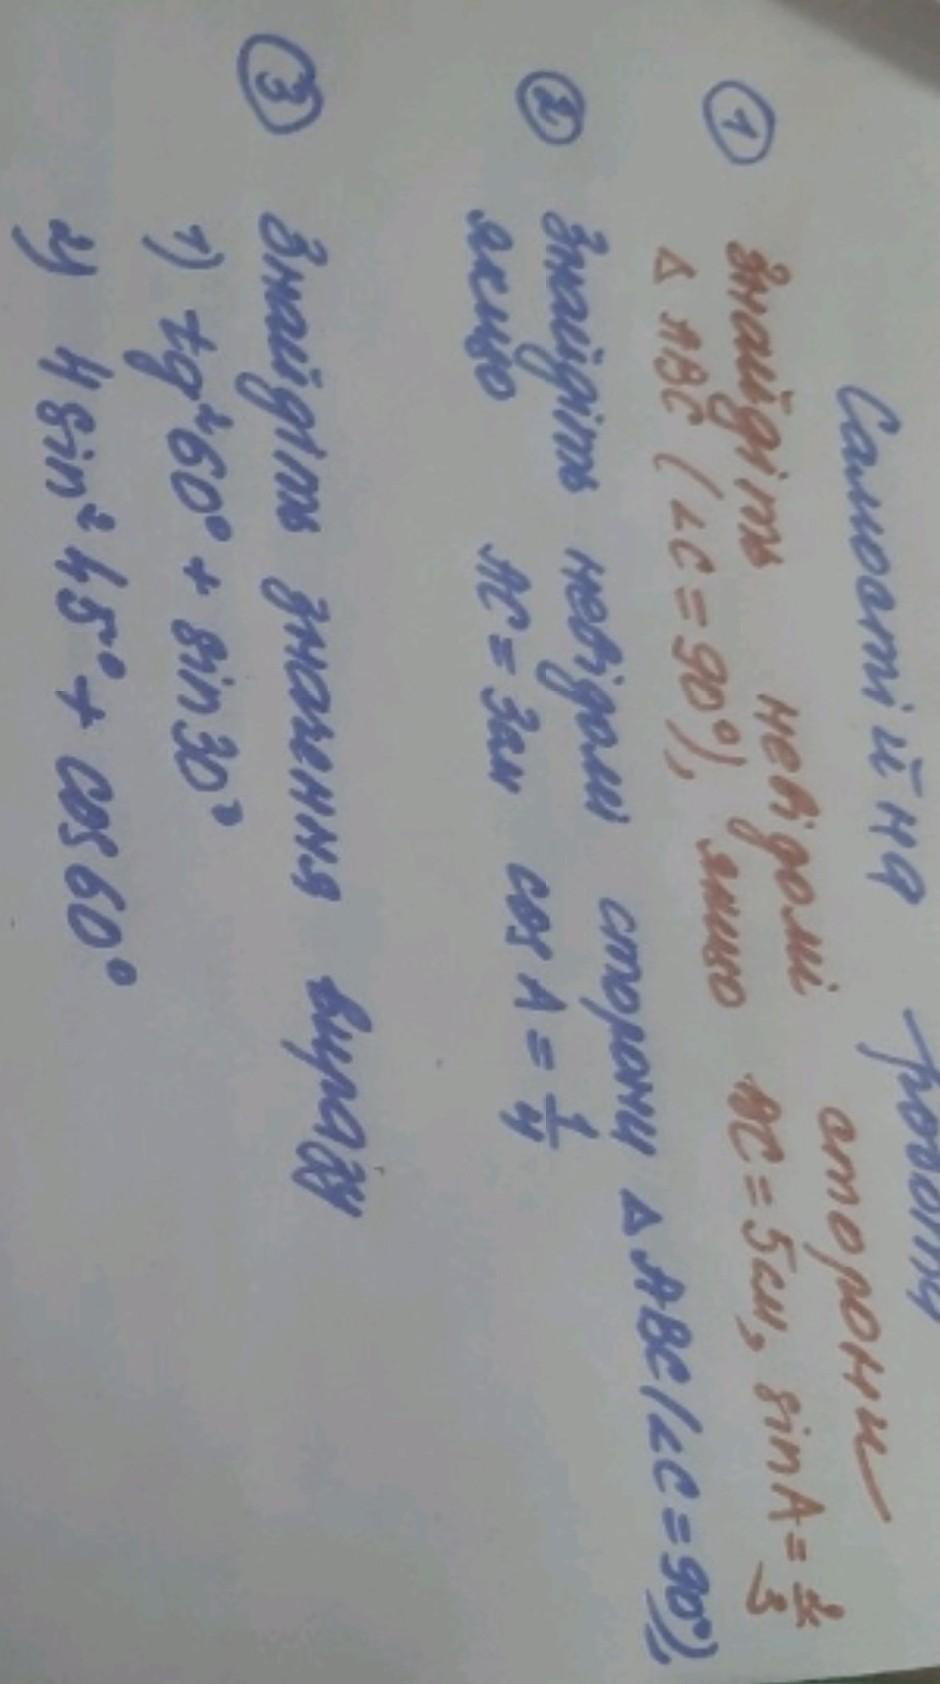 Самостійна робота
① Знайдіть невідомі сторони
△ ABC (∠C = 90°), якщо AC = 5см, sin A = 2/3
② Знайдіть невідомі сторони △ ABC (∠C = 90°),
якщо AC = 3см cos A = 1/4
③ Знайдіть значення виразу
1) tg²60° + sin 30°
2) 4 sin² 45° + cos 60°